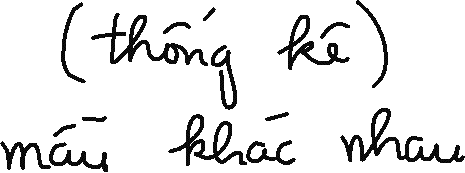 (thống kê)
mẫu khác nhau